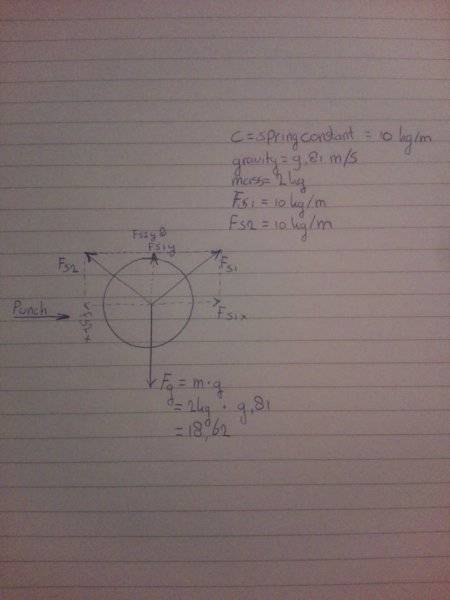 C = spring constant = 10 kg/m
gravity = 9,81 m/s
mass = 2kg
Fs1 = 10 kg/m
Fs2 = 10 kg/m
Fs2y &
Fs1y
Fs2
Fs1
Punch
Fs1x
Fg = m·g
= 2kg · 9,81
= 18,62